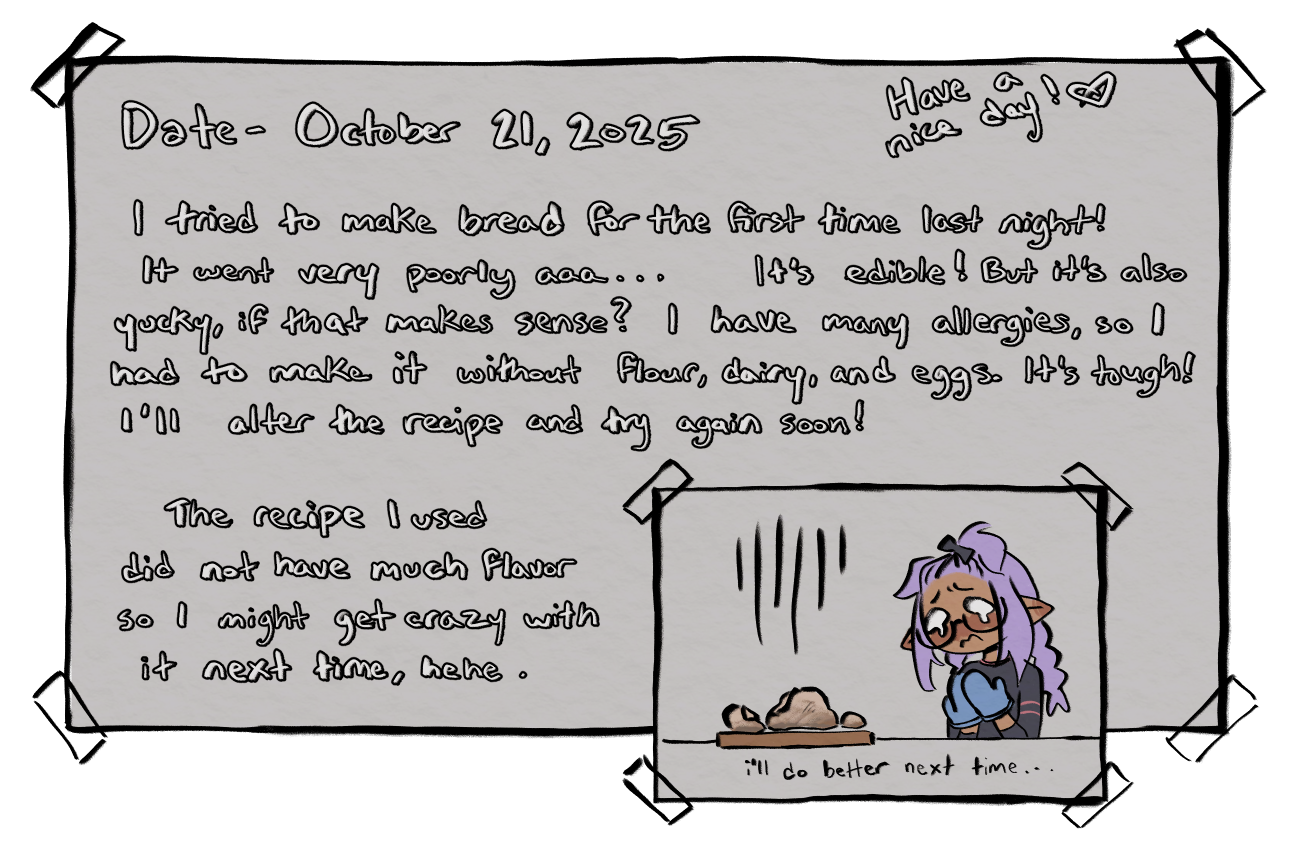 Date - October 21, 2025
Have a
nice day! ♡
I tried to make bread for the first time last night!
It went very poorly aaa... It's edible! But it's also
yucky, if that makes sense? I have many allergies, so I
had to make it without flour, dairy, and eggs. It's tough!
I'll alter the recipe and try again soon!
The recipe I used
did not have much flavor
so I might get crazy with
it next time, hehe.
i'll do better next time...